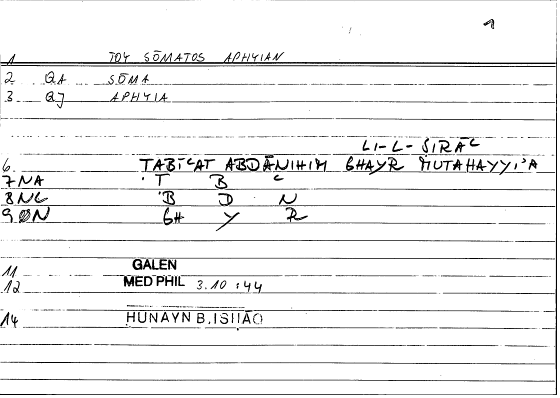 1
1 TOY SŌMATOS APHYIAN
2 QA SŌMA
3 QJ APHYIA
LI-L-ṢIRĀC
6 TABĪCAT ABDĀNIHIM GHAYR MUTAHAYYI'A
7 NA T B C
8 NC B D N
9 ØN GH Y R
11 GALEN
12 MED PHIL 3.10 :44
14 HUNAYN B.ISHĀQ